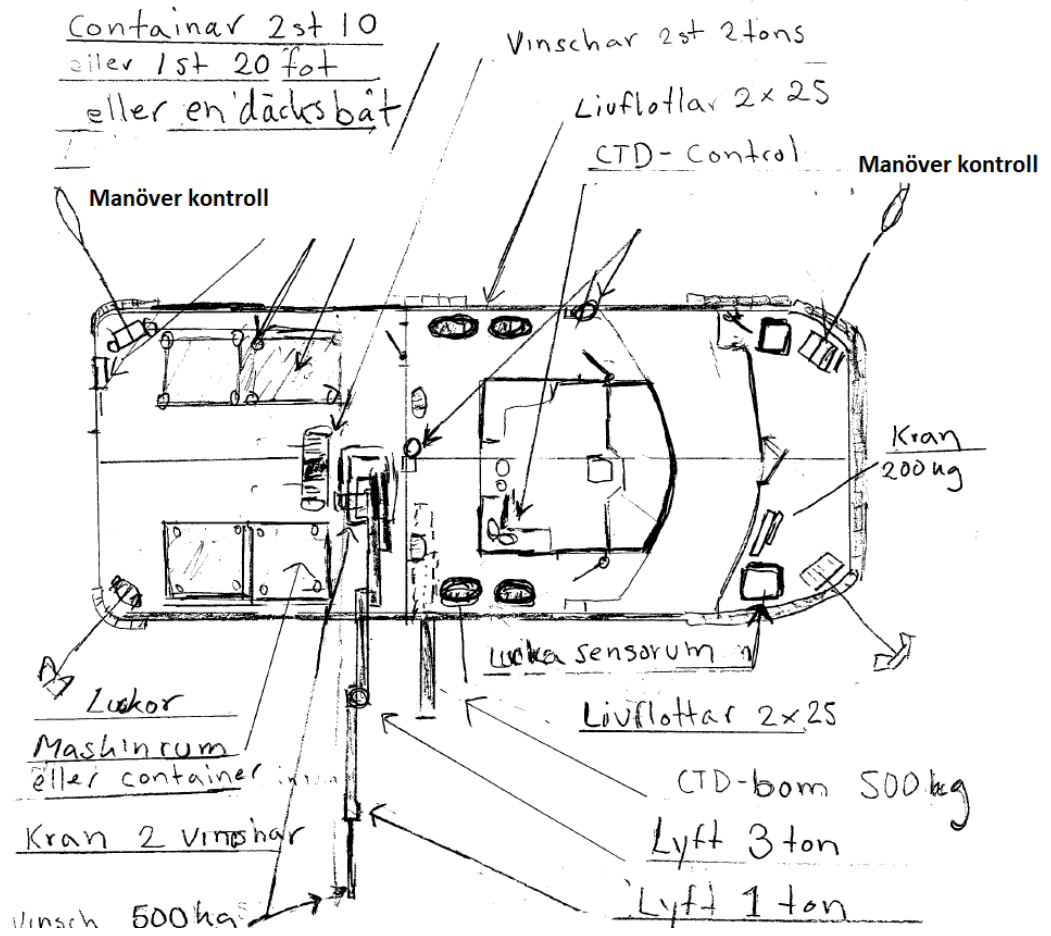 Containar 2st 10
eller 1st 20 fot
eller en däcksbåt
Vinschar 2st 2tons
Livflottar 2x25
CTD-Control
Manöver kontroll
Manöver kontroll
Kran
200kg
Lucka sensorum
Livflottar 2x25
Luckor
Maskinrum
eller container
CTD-bom 500kg
Kran 2 vinshar
Lyft 3 ton
Lyft 1 ton
Vinsch 500kg